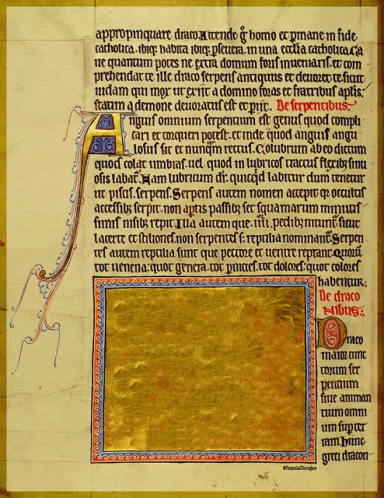 appropinquare draco. Attende g homo et pmane in fide
catholica. ibiq habita ibiq pseuera. in una ecclia catholica. Ca
ue quantum potes ne extra domum foris inueniaris. et com
prehendat te ille draco serpens antiquus et deuoret te sicut
iudam qui mox ut exiit a domino foras et fratribus aplis.
statim a demone deuoratus est et piit. De serpentibus.
Anguis omnium serpentium est genus quod compli
cari et torqueri potest. et inde quod anguis angu
losus sit et nunqm rectus. Colubrum ab eo dictum
quod colat umbras. uel quod in lubricos tractus flexibus sinu
osis labat. Nam lubricum dr. quicqd labitur dum tenetur
ut piscis. serpens. Serpens autem nomen accepit qr occultis
accessibus serpit. non aptis passibus set squamarum minutis
simis nisibus repit. Illa autem que .iiii. pedibus nitunt sicut
lacerte et stiliones. non serpentes s reptilia nominant. Serpen
tes autem reptilia sunt que pectore et uentre reptant. Quorum
tot uenena. quot genera. tot pnicies. tot dolores. quot colores
habentur.
De draco
nibus.
Draco
maior cunc
torum ser
pentium
siue animan
tium omni
um super ter
ram. hunc
greci dracon